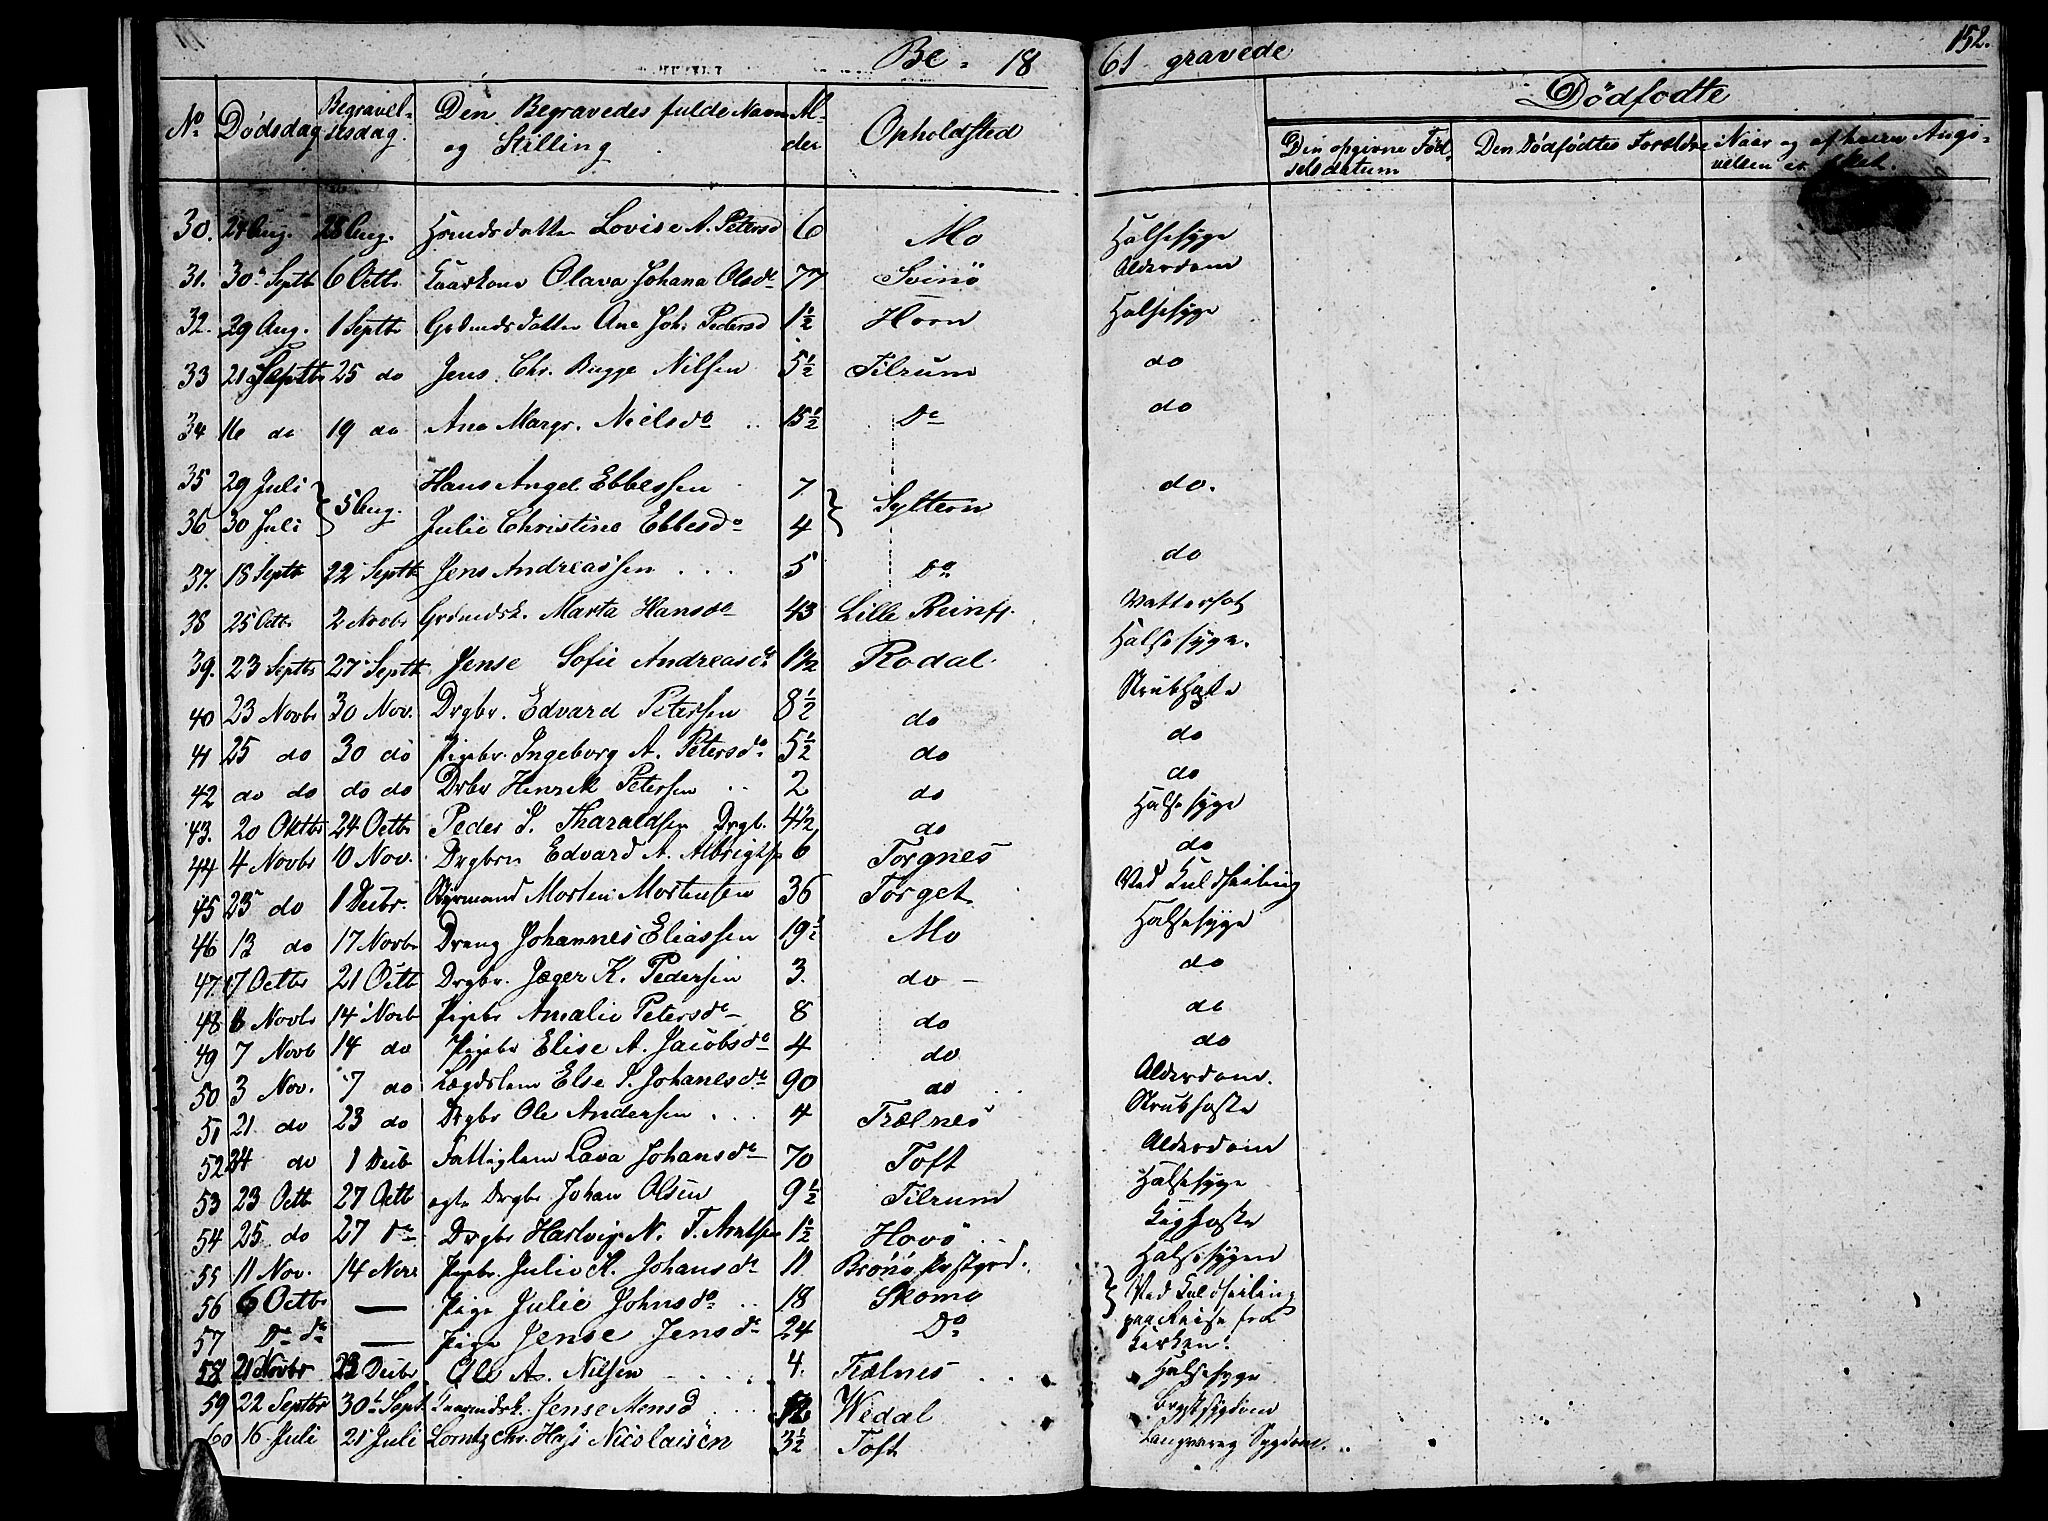 152.
Be- 18 61 gravede
Dødfødte
No Dødsdag Begravelsesdag. Den Begravedes fulde Navn og Stilling Alder Opholdsted Den opgivne Fødselsdatum Den Dødfødtes Forældre Naar og af hvem Angivelsen er skeet.
30. 24 Aug. 28 Aug. Lovise A. Petersd 6 Mo Halsesyge
31. 30 Septb 6 Octb Kaarkone Olava Johana Olsdr 77 Svinö Alderdom
32. 29 Aug. 1 Septb Ane Joh. Pedersd 1½ Horn Halsesyge
33 21 Septb 25 do Jens Chr. Bugge Nilsen 5½ Tilrum do
34 16 do 19 do Ane Margr. Nielsdr 15½ Do do
35 29 Juli } 5 Aug. Hans Angel Ebbessen 7 } Syltern do.
36 30 Juli Julie Christine Ebbesdr 4
37. 18 Septb 22 Septb Jens Andreassen 5 Do do
38 25 Octb 2 Novbr Marta Hansdr 43 Lille Vattersot
39. 23 Septbr 27 Septb Jense Sofie 1½ Rodal Halsesyge.
40 23 Novbr 30 Nov. Drgbr. Edvard Petersen 8½ do Strubhoste
41 25 do 30 do Pigebr. Ingeborg A. Petersdr 5½ do do
42 do do do do Drbr Henrik Petersen 2 do do
43. 20 Oktbr 24 Octb Peder S. Tharaldsen Drgb. 4½ do Halsesyge
44 4 Novbr 10 Nov. Drgbrn Edvard A. Albrigtsn 6 Torgnes do
45 23 do 1 Decbr. Styrmand Morten Mortensen 36 Torget Ved Kuldseiling
46 13 do 17 Novbr Dreng Johannes Eliassen 19½ Mo Halsesyge
47. 17 Octbr 21 Octb Drgbr. Jæger K. Pedersen 3. do - do
48 8 Novbr 14 Novb Pigebr Amalie Petersdr 8 do do
49 7 Novb 14 do Pigebr Elise A. Jacobsdr 4 do do
50 3 Nov. 7 do Lægdslem Else J. Johanesdr 90 do Alderdom.
51 21 do 23 do Drgbr Ole Andersen 4 Trælnes Strubhoste
52 24 do 1 Decb Fattiglem Lava Johansdr 70 Toft Alderdom
53 23 Octb 27 Octb ægte Drgbr Johan Olsen 9½ Tilrum Halsesyge
54 25 do 27 do Drgbr Hartvig N. F. Arntsen 1½ Havö Kighoste
55 11 Nov. 14 Nov. Pigebr. Julie K. Johansdr 11 Brönö Præstgrd. Halsesygen
56 6 Octbr — Pige Julie Johnsdr 18 Skomo } Ved Kuldseiling
57 Do do — Pige Jense Jensdr 24 Do paa Reise fra Kirken.
58 21 Novbr 23 Decbr Ole A. Nilsen 4. Trælnes Halsesyge
59 22 Septbr 30 Sept. Jense Monsd Wedal Brystsygdom
60 16 Juli 21 Juli Lorntz Chr. Nicolaisen 3½ Toft Langvarig Sygdom.